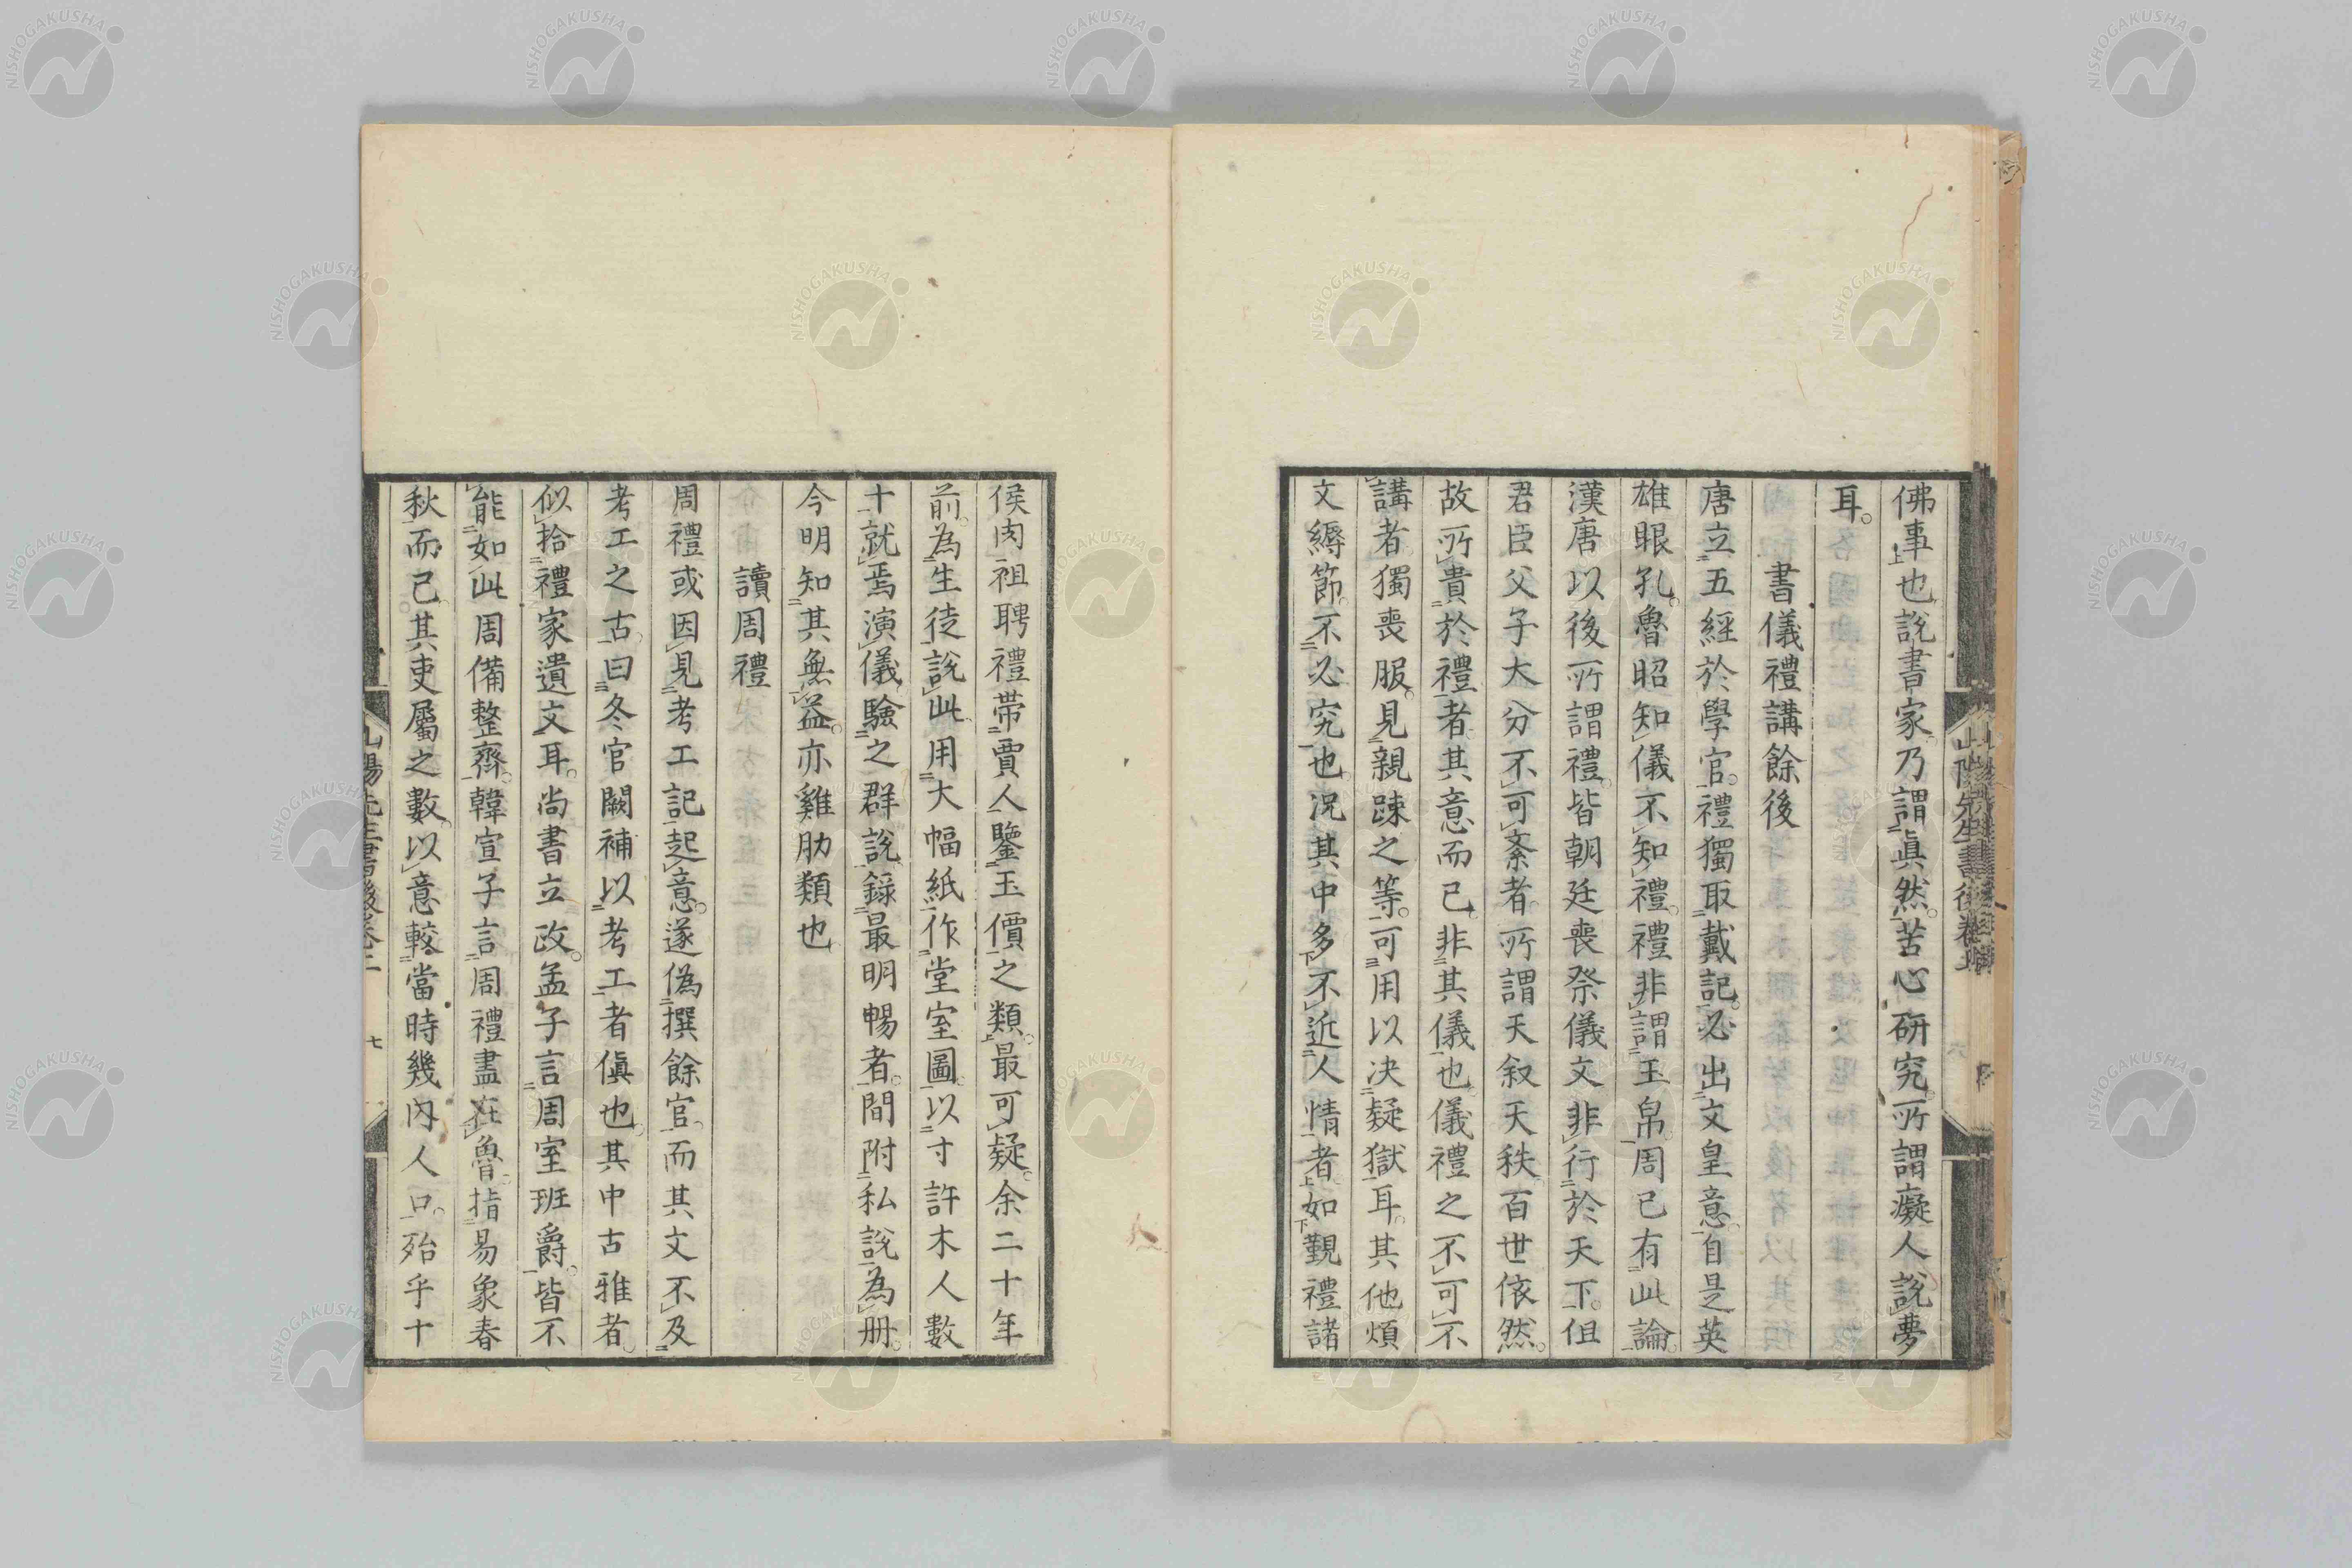 佛事也說書家乃謂眞然苦心研究所謂癡人說夢
耳
書儀禮講餘後
唐立五經於學官禮獨取戴記必出文皇意自是英
雄眼孔魯昭知儀不知禮禮非謂玉帛周已有此論
漢唐以後所謂禮皆朝廷喪祭儀文非行於天下但
君臣父子大分不可紊者所謂天叙天秩百世依然
故所貴於禮者其意而已非其儀也儀禮之不可不
講者獨喪服見親踈之等可用以决疑獄耳其他煩
文縟節不必究也况其中多不近人情者如覲禮諸
侯肉袒聘禮帶賈人鑒玉價之類最可疑余二十年
前為生徒說此用大幅紙作堂室圖以寸許木人數
十就焉演儀驗之群說錄最明暢者間附私說為册
今明知其無益亦雞肋類也
讀周禮
周禮或因見考工記起意遂偽撰餘官而其文不及
考工之古曰冬官闕補以考工者傎也其中古雅者
似拾禮家遺文耳尚書立政孟子言周室班爵皆不
能如此周備整齊韓宣子言周禮盡在魯指易象春
秋而已其吏屬之數以意較當時幾內人口殆乎十
山陽先生書後卷上
七
NISHOGAKUSHA